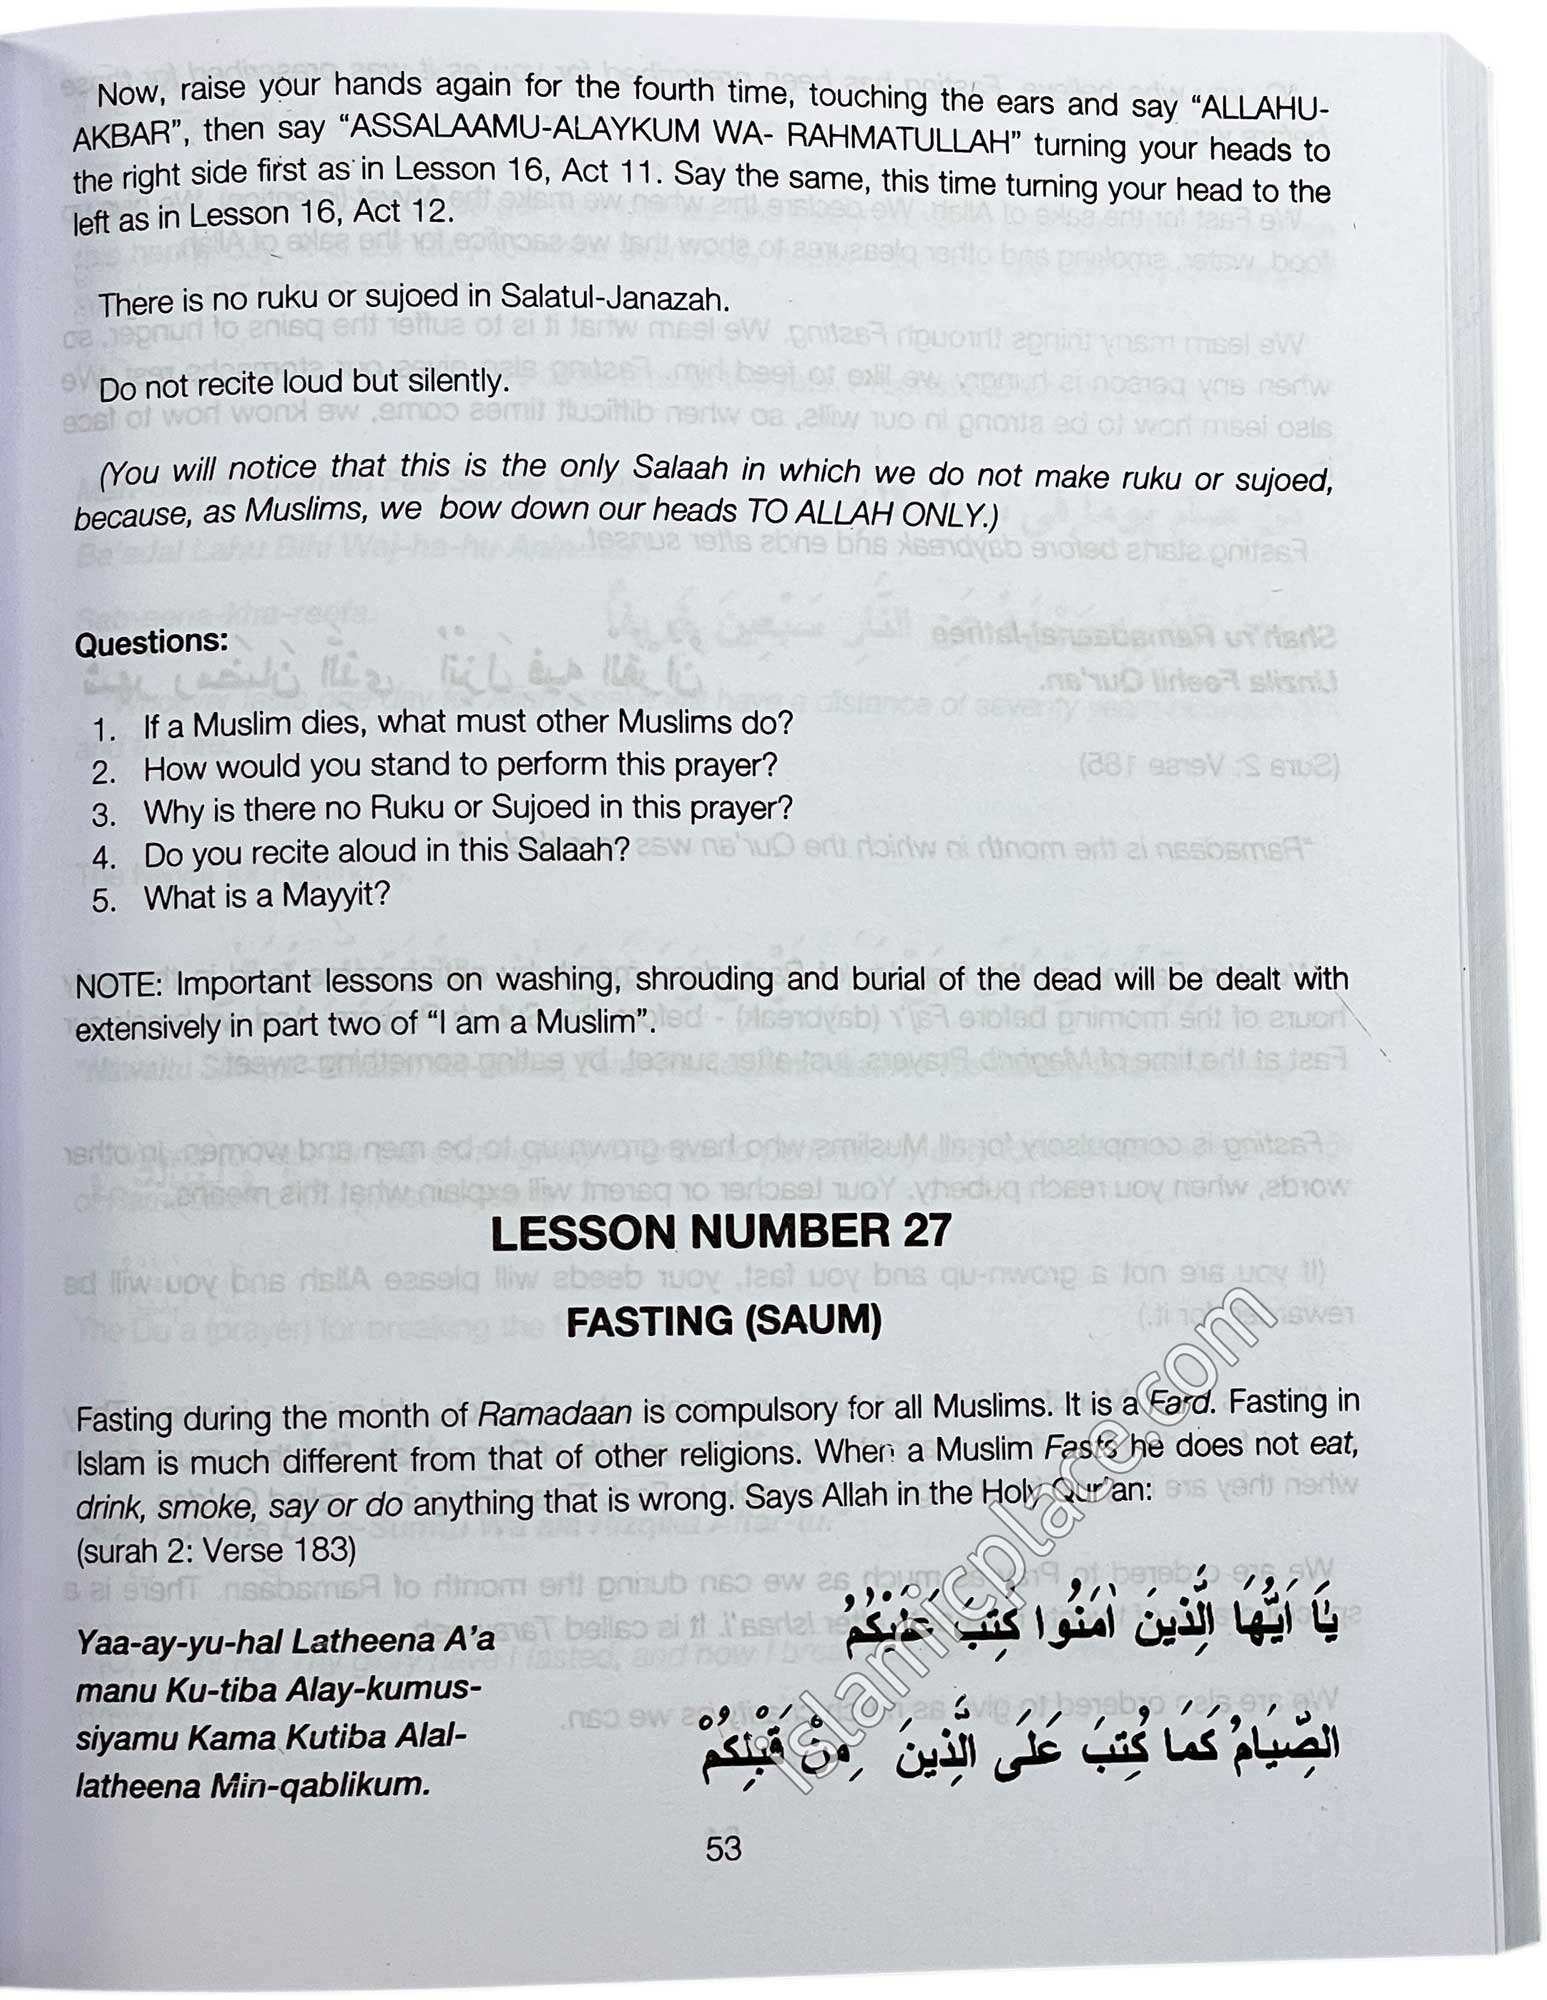 Now, raise your hands again for the fourth time, touching the ears and say “ALLAHU-
AKBAR”, then say “ASSALAAMU-ALAYKUM WA- RAHMATULLAH” turning your heads to
the right side first as in Lesson 16, Act 11. Say the same, this time turning your head to the
left as in Lesson 16, Act 12.
There is no ruku or sujoed in Salatul-Janazah.
Do not recite loud but silently.
(You will notice that this is the only Salaah in which we do not make ruku or sujoed,
because, as Muslims, we bow down our heads TO ALLAH ONLY.)
Questions:
1. If a Muslim dies, what must other Muslims do?
2. How would you stand to perform this prayer?
3. Why is there no Ruku or Sujoed in this prayer?
4. Do you recite aloud in this Salaah?
5. What is a Mayyit?
NOTE: Important lessons on washing, shrouding and burial of the dead will be dealt with
extensively in part two of “I am a Muslim”.
LESSON NUMBER 27
FASTING (SAUM)
Fasting during the month of Ramadaan is compulsory for all Muslims. It is a Fard. Fasting in
Islam is much different from that of other religions. When a Muslim Fasts he does not eat,
drink, smoke, say or do anything that is wrong. Says Allah in the Holy Qur’an:
(surah 2: Verse 183)
يَا أَيُّهَا الَّذِينَ اٰمَنُوا كُتِبَ عَلَيْكُمُ
الصِّيَامُ كَمَا كُتِبَ عَلَى الَّذِينَ مِنْ قَبْلِكُمْ
Yaa-ay-yu-hal Latheena A’a
manu Ku-tiba Alay-kumus-
siyamu Kama Kutiba Alal-
latheena Min-qablikum.
53
islamicplace.com